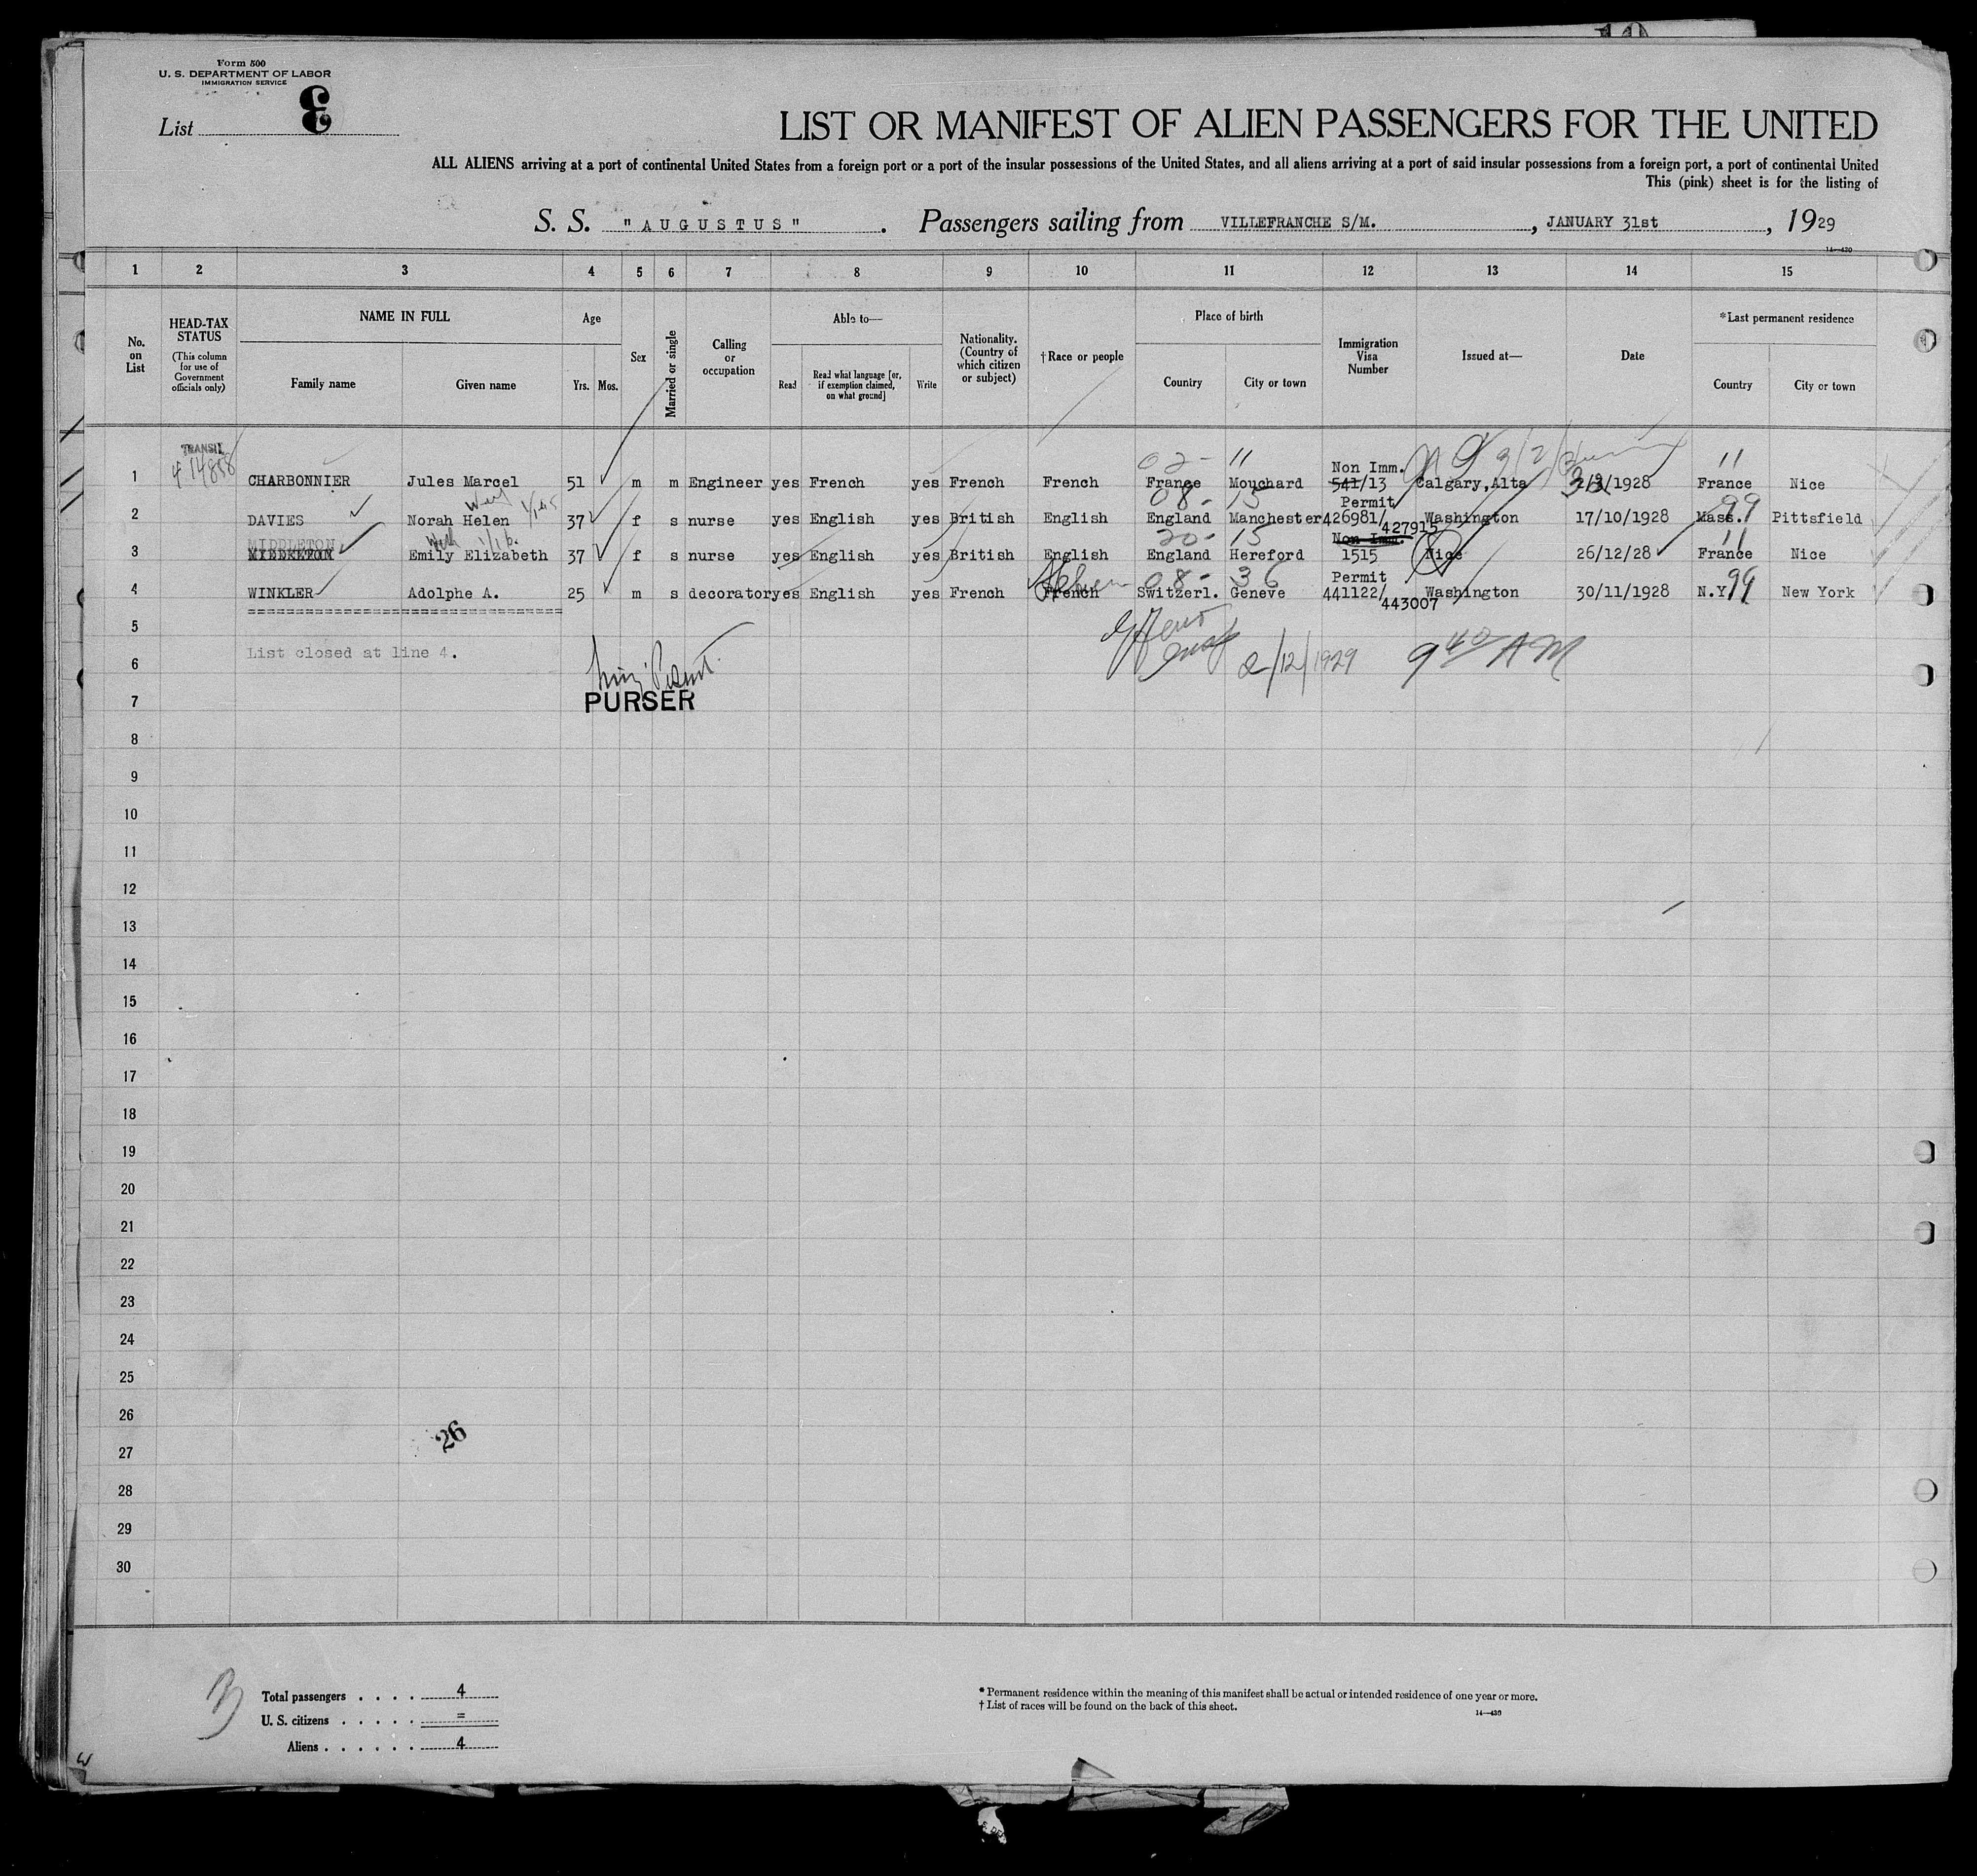 Form 500
U. S. DEPARTMENT OF LABOR
IMMIGRATION SERVICE
List 3
LIST OR MANIFEST OF ALIEN PASSENGERS FOR THE UNITED
ALL ALIENS arriving at a port of continental United States from a foreign port or a port of the insular possessions of the United States, and all aliens arriving at a port of said insular possessions from a foreign port, a port of continental United
This (pink) sheet is for the listing of
S. S. "AUGUSTUS". Passengers sailing from VILLEFRANCHE S/M., JANUARY 31st, 1929
14—430
1 2 3 4 5 6 7 8 9 10 11 12 13 14 15
No. on List
HEAD-TAX STATUS
(This column for use of Government officials only)
NAME IN FULL
Family name
Given name
Age
Yrs. Mos.
Sex
Married or single
Calling or occupation
Able to—
Read
Read what language [or, if exemption claimed, on what ground]
Write
Nationality. (Country of which citizen or subject)
†Race or people
Place of birth
Country
City or town
Immigration Visa Number
Issued at—
Date
*Last permanent residence
Country
City or town
TRANSIT
02- 11 11
Non Imm.
1 CHARBONNIER Jules Marcel 51 m m Engineer yes French yes French French France Mouchard 541/13 Calgary,Alta /1928 France Nice
08- 15 Permit 99
2 DAVIES Norah Helen 37 f s nurse yes English yes British English England Manchester 426981/ 427915 Washington 17/10/1928 Mass. Pittsfield
MIDDLETON
20- 15 Non Imm. 11
3 MIDDLETON Emily Elizabeth 37 f s nurse yes English yes British English England Hereford 1515 Nice 26/12/28 France Nice
08- 36 Permit 99
4 WINKLER Adolphe A. 25 m s decorator yes English yes French French Switzerl. Geneve 441122/ 443007 Washington 30/11/1928 N.Y. New York
==================================
5
List closed at line 4.
6
2/12/1929 9 40 AM
PURSER
7
8
9
10
11
12
13
14
15
16
17
18
19
20
21
22
23
24
25
26
26
27
28
29
30
Total passengers . . . . 4
U. S. citizens . . . . . =
Aliens . . . . . . 4
* Permanent residence within the meaning of this manifest shall be actual or intended residence of one year or more.
† List of races will be found on the back of this sheet.
14—430